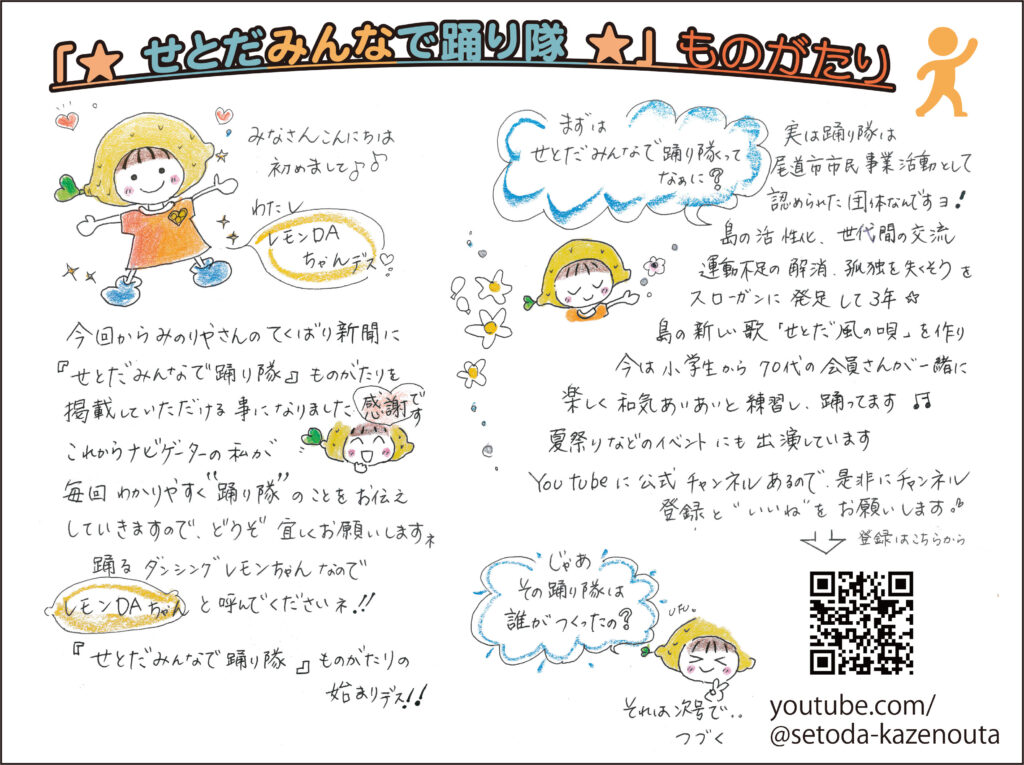 「★ せとだみんなで踊り隊 ★」ものがたり
みなさんこんにちは
初めまして♪♪
わたし
レモンDA
ちゃんデス♡
今回からみのりやさんのてくばり新聞に
『せとだみんなで踊り隊』ものがたりを
掲載していただける事になりました 感謝です
これからナビゲーターの私が
毎回わかりやすく“踊り隊”のことをお伝え
していきますので、どうぞ宜しくお願いしますネ
踊るダンシングレモンちゃんなので
レモンDAちゃん と呼んでくださいネ!!
『せとだみんなで踊り隊』ものがたりの
始まりデス!!
まずは
せとだみんなで踊り隊って
なぁに?
実は踊り隊は
尾道市市民事業活動として
認められた団体なんですョ!
島の活性化、世代間の交流
運動不足の解消、孤独を失くそうを
スローガンに発足して3年☆
島の新しい歌「せとだ風の唄」を作り
今は小学生から70代の会員さんが一緒に
楽しく和気あいあいと練習し、踊ってます♫
夏祭りなどのイベントにも出演しています
YouTubeに公式チャンネルあるので、是非にチャンネル
登録と“いいね”をお願いします。
登録はこちらから
じゃあ
その踊り隊は
誰がつくったの?
ufu。
それは次号で‥
つづく
youtube.com/
@setoda-kazenouta